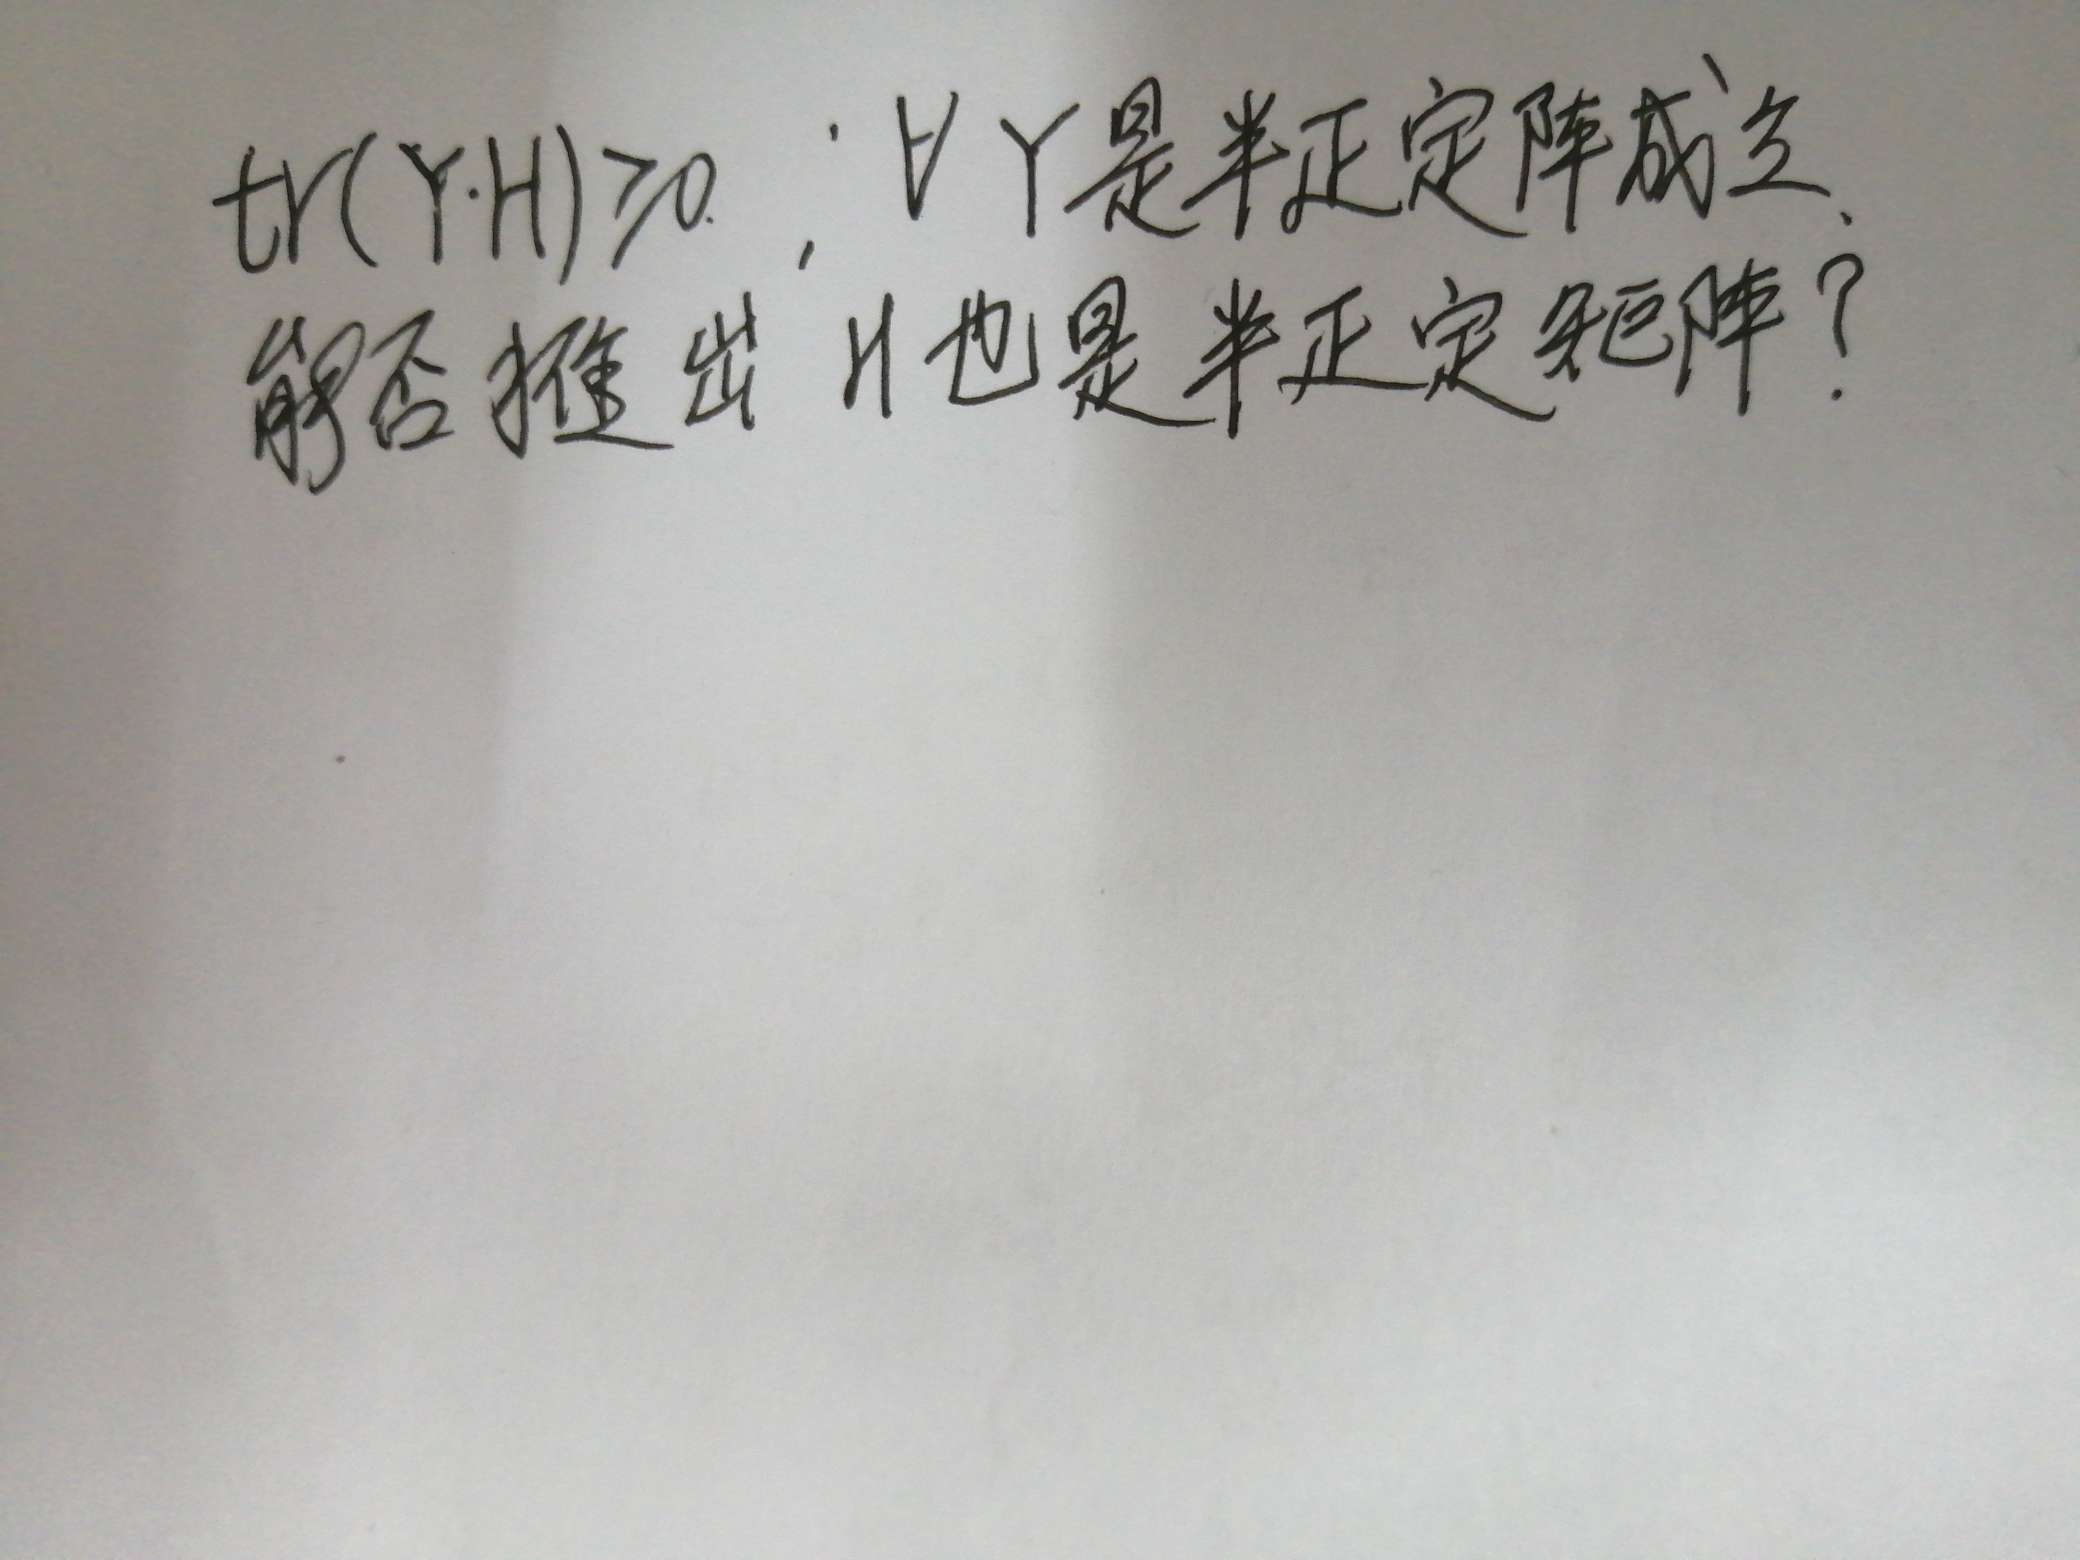 tr(Y·H)≥0. , ∀ Y是半正定阵成立.
能否推出 H也是半正定矩阵?